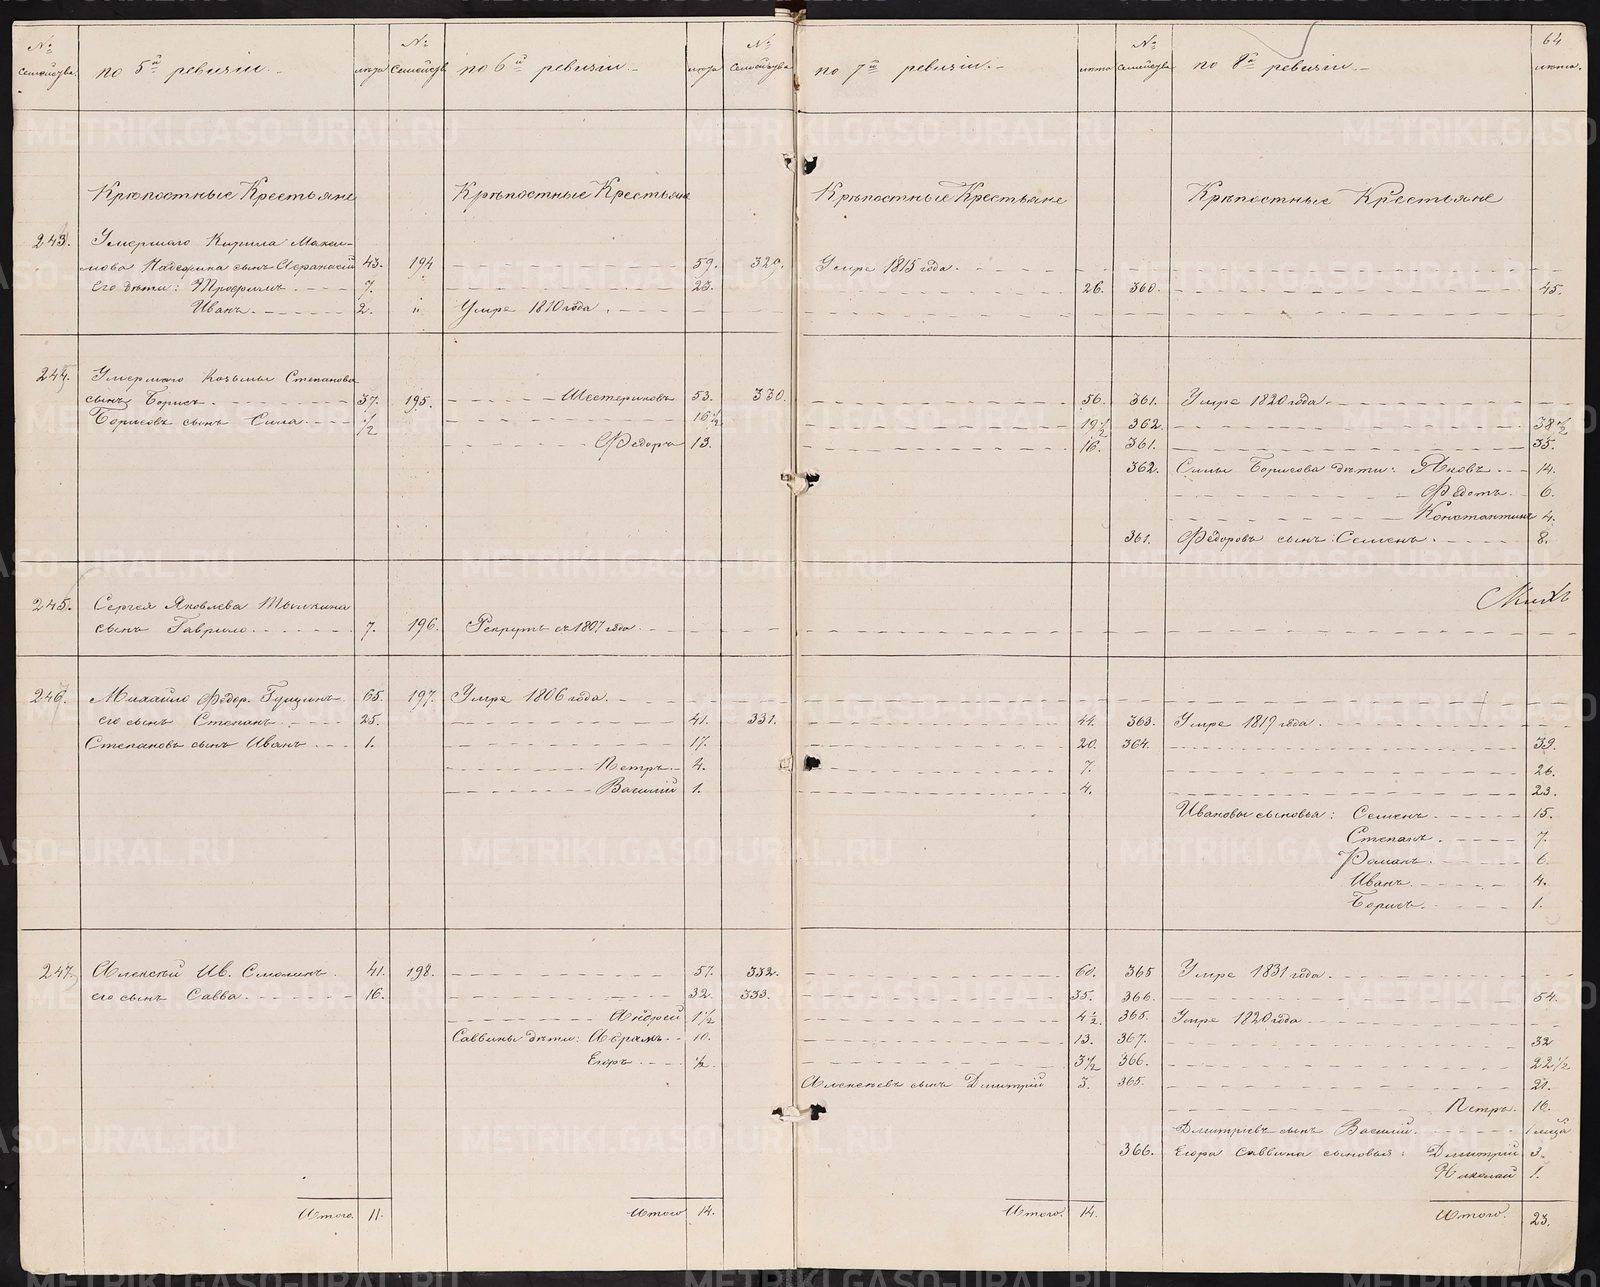 64
№ семейства. по 5й ревизіи. лѣта № семейств по 6й ревизіи. лѣта № семейства по 7й ревизіи. лѣта № семейства по 8й ревизіи. лѣта.
Крѣпостные Крестьяне Крѣпостные Крестьяне Крѣпостные Крестьяне Крѣпостные Крестьяне
243. Умершаго Кирила Макси-
мова сынъ Афанасій 43. 194 59. 329. Умре 1815 года.
его дѣти: Трофимъ 7. 23. 26. 360. 45.
Иванъ. 2. " Умре 1810 года.
244. Умершаго Козьмы Степанова
сынъ Борисъ 37. 195. Шестериковъ 53. 330. 56. 361. Умре 1820 года.
Борисовъ сынъ Сила. 1/2 16 1/2 19 1/2 362. 38 1/2
Федоръ 13. 16. 361. 35.
362. Силы Борисова дѣти: Яковъ 14.
Федотъ. 6.
Константинъ 4.
361. Федоровъ сынъ Семенъ. 8.
245. Сергея Яковлева
сынъ Гаврило. 7. 196. Рекрутъ съ 1807 года.
246. Михайло Федор. Гущинъ 65. 197. Умре 1806 года.
его сынъ Степанъ 25. 41. 331. 44. 363. Умре 1819 года.
Степановъ сынъ Иванъ 1. 17. 20. 364. 39.
Петръ. 4. 7. 26.
Василій 1. 4. 23.
Ивановы сыновья: Семенъ. 15.
Степанъ. 7.
Романъ. 6.
Иванъ. 4.
Борисъ. 1.
247. Алексѣй Ив. Смолинъ. 41. 198. 57. 332. 60. 365 Умре 1831 года.
его сынъ Савва. 16. 32. 333. 35. 366. 54.
Андрей 1 1/2 4 1/2. 365. Умре 1820 года
Саввины дѣти: Абрамъ. 10. 13. 367. 32
Егоръ 1/2. 3 1/2 366. 22 1/2
Алексѣевъ сынъ Дмитрій 3. 365. 21.
Петръ. 16.
Дмитріевъ сынъ Василій.
366. Егора Саввина сыновья: Дмитрій 3.
Николай 1.
Итого. 11. Итого 14. Итого. 14. Итого. 23.
METRIKI.GASO-URAL.RU